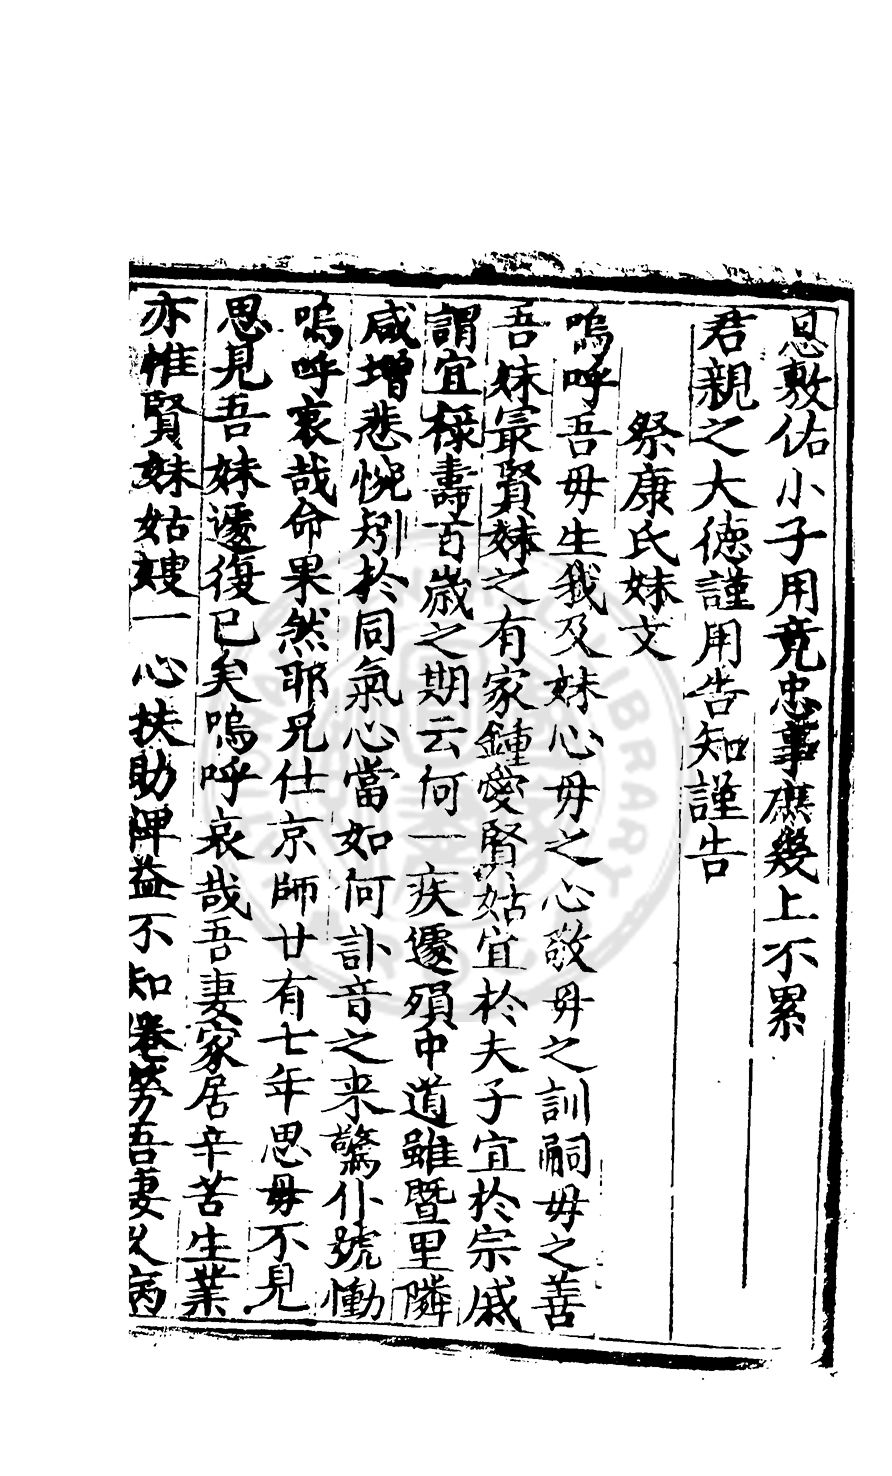 恩敷佑小子用竟忠事庶幾上不累
君親之大德謹用告知謹告
祭康氏妹文
嗚呼吾母生我及妹心母之心敬母之訓嗣母之善
吾妹最賢妹之有家鍾愛賢姑宜於夫子宜於宗戚
謂宜祿壽百歲之期云何一疾遽殞中道雖暨里隣
咸增悲惋矧於同氣心當如何訃音之来驚仆號慟
嗚呼哀哉命果然耶兄仕京師廿有七年思母不見
思見吾妹遽復已矣嗚呼哀哉吾妻家居辛苦生業
亦惟賢妹姑嫂一心扶助裨益不知倦勞吾妻久病